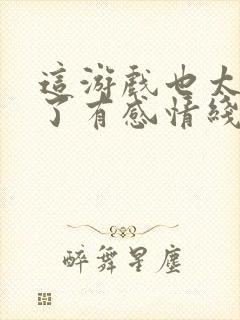 這游戲也太
了有感情綫
醉舞星塵